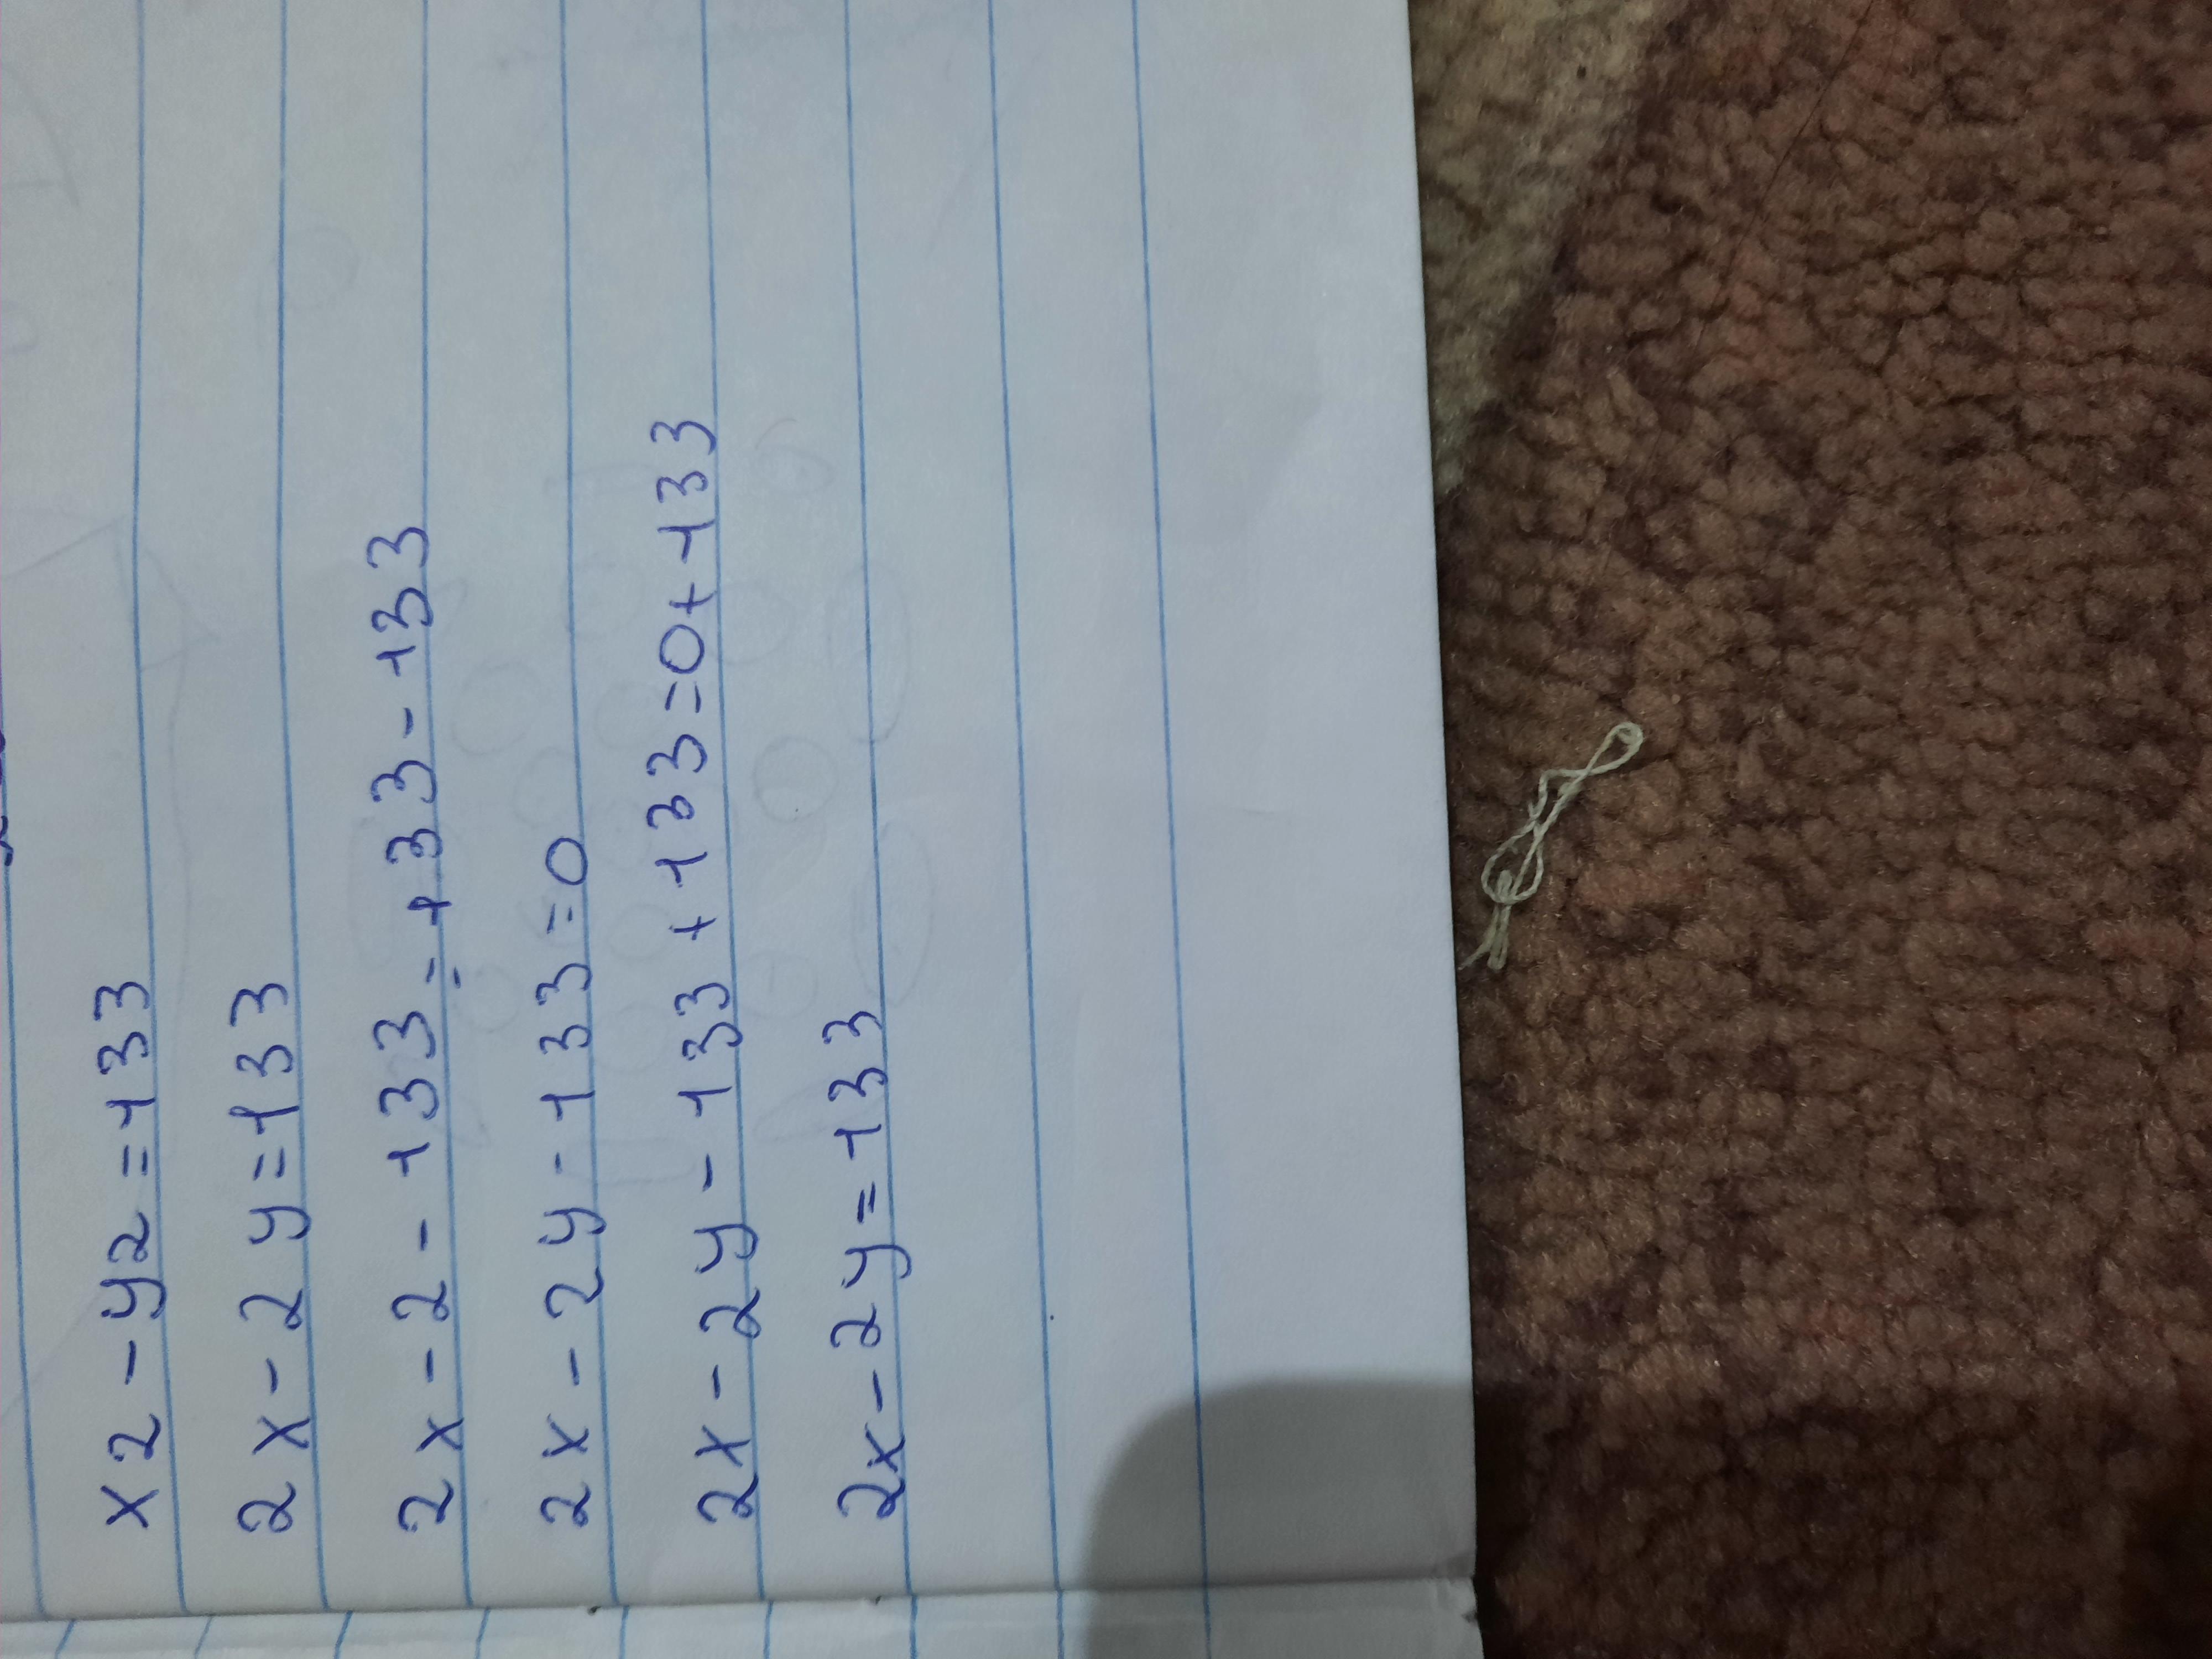 x2-y2=133
2x-2y=133
2x-2-133=133-133
2x-2y-133=0
2x-2y-133+133=0+133
2x-2y=133